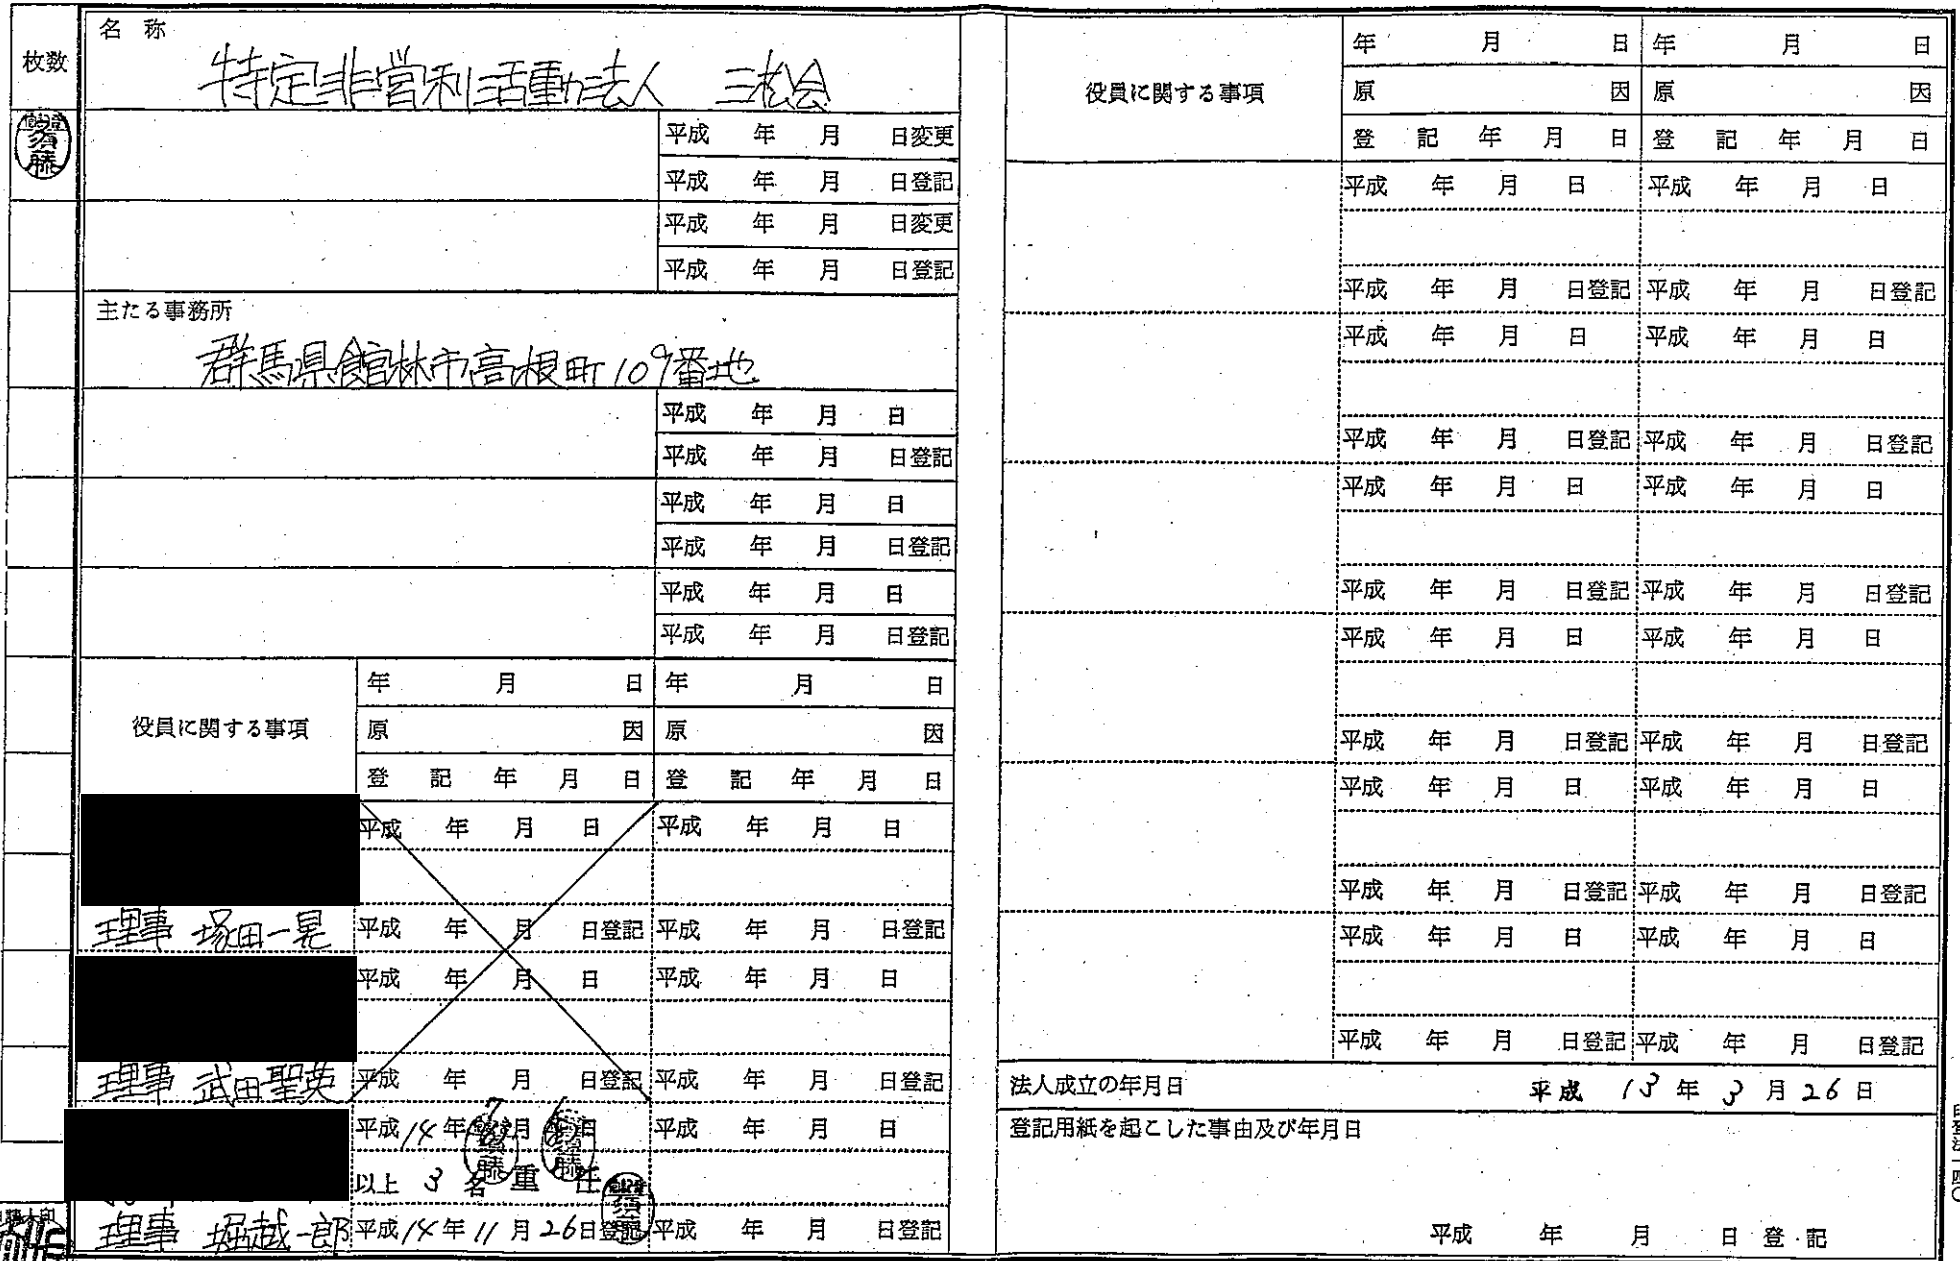 枚数
名 称
特定非営利活動法人 三松会
須藤
平成 年 月 日変更
平成 年 月 日登記
平成 年 月 日変更
平成 年 月 日登記
主たる事務所
群馬県館林市高根町109番地
平成 年 月 日
平成 年 月 日登記
平成 年 月 日
平成 年 月 日登記
平成 年 月 日
平成 年 月 日登記
役員に関する事項
年 月 日 年 月 日
原 因 原 因
登 記 年 月 日 登 記 年 月 日
平成 年 月 日 平成 年 月 日
理事 塚田一晃 平成 年 月 日登記 平成 年 月 日登記
平成 年 月 日 平成 年 月 日
理事 武田聖英 平成 年 月 日登記 平成 年 月 日登記
平成14年7月6日 平成 年 月 日
以上 3 名 重 任
理事 堀越一郎 平成14年11月26日登記 平成 年 月 日登記
役員に関する事項
年 月 日 年 月 日
原 因 原 因
登 記 年 月 日 登 記 年 月 日
平成 年 月 日 平成 年 月 日
平成 年 月 日登記 平成 年 月 日登記
平成 年 月 日 平成 年 月 日
平成 年 月 日登記 平成 年 月 日登記
平成 年 月 日 平成 年 月 日
平成 年 月 日登記 平成 年 月 日登記
平成 年 月 日 平成 年 月 日
平成 年 月 日登記 平成 年 月 日登記
平成 年 月 日 平成 年 月 日
平成 年 月 日登記 平成 年 月 日登記
平成 年 月 日 平成 年 月 日
平成 年 月 日登記 平成 年 月 日登記
法人成立の年月日 平成 13 年 3 月 26 日
登記用紙を起こした事由及び年月日
平成 年 月 日 登 記